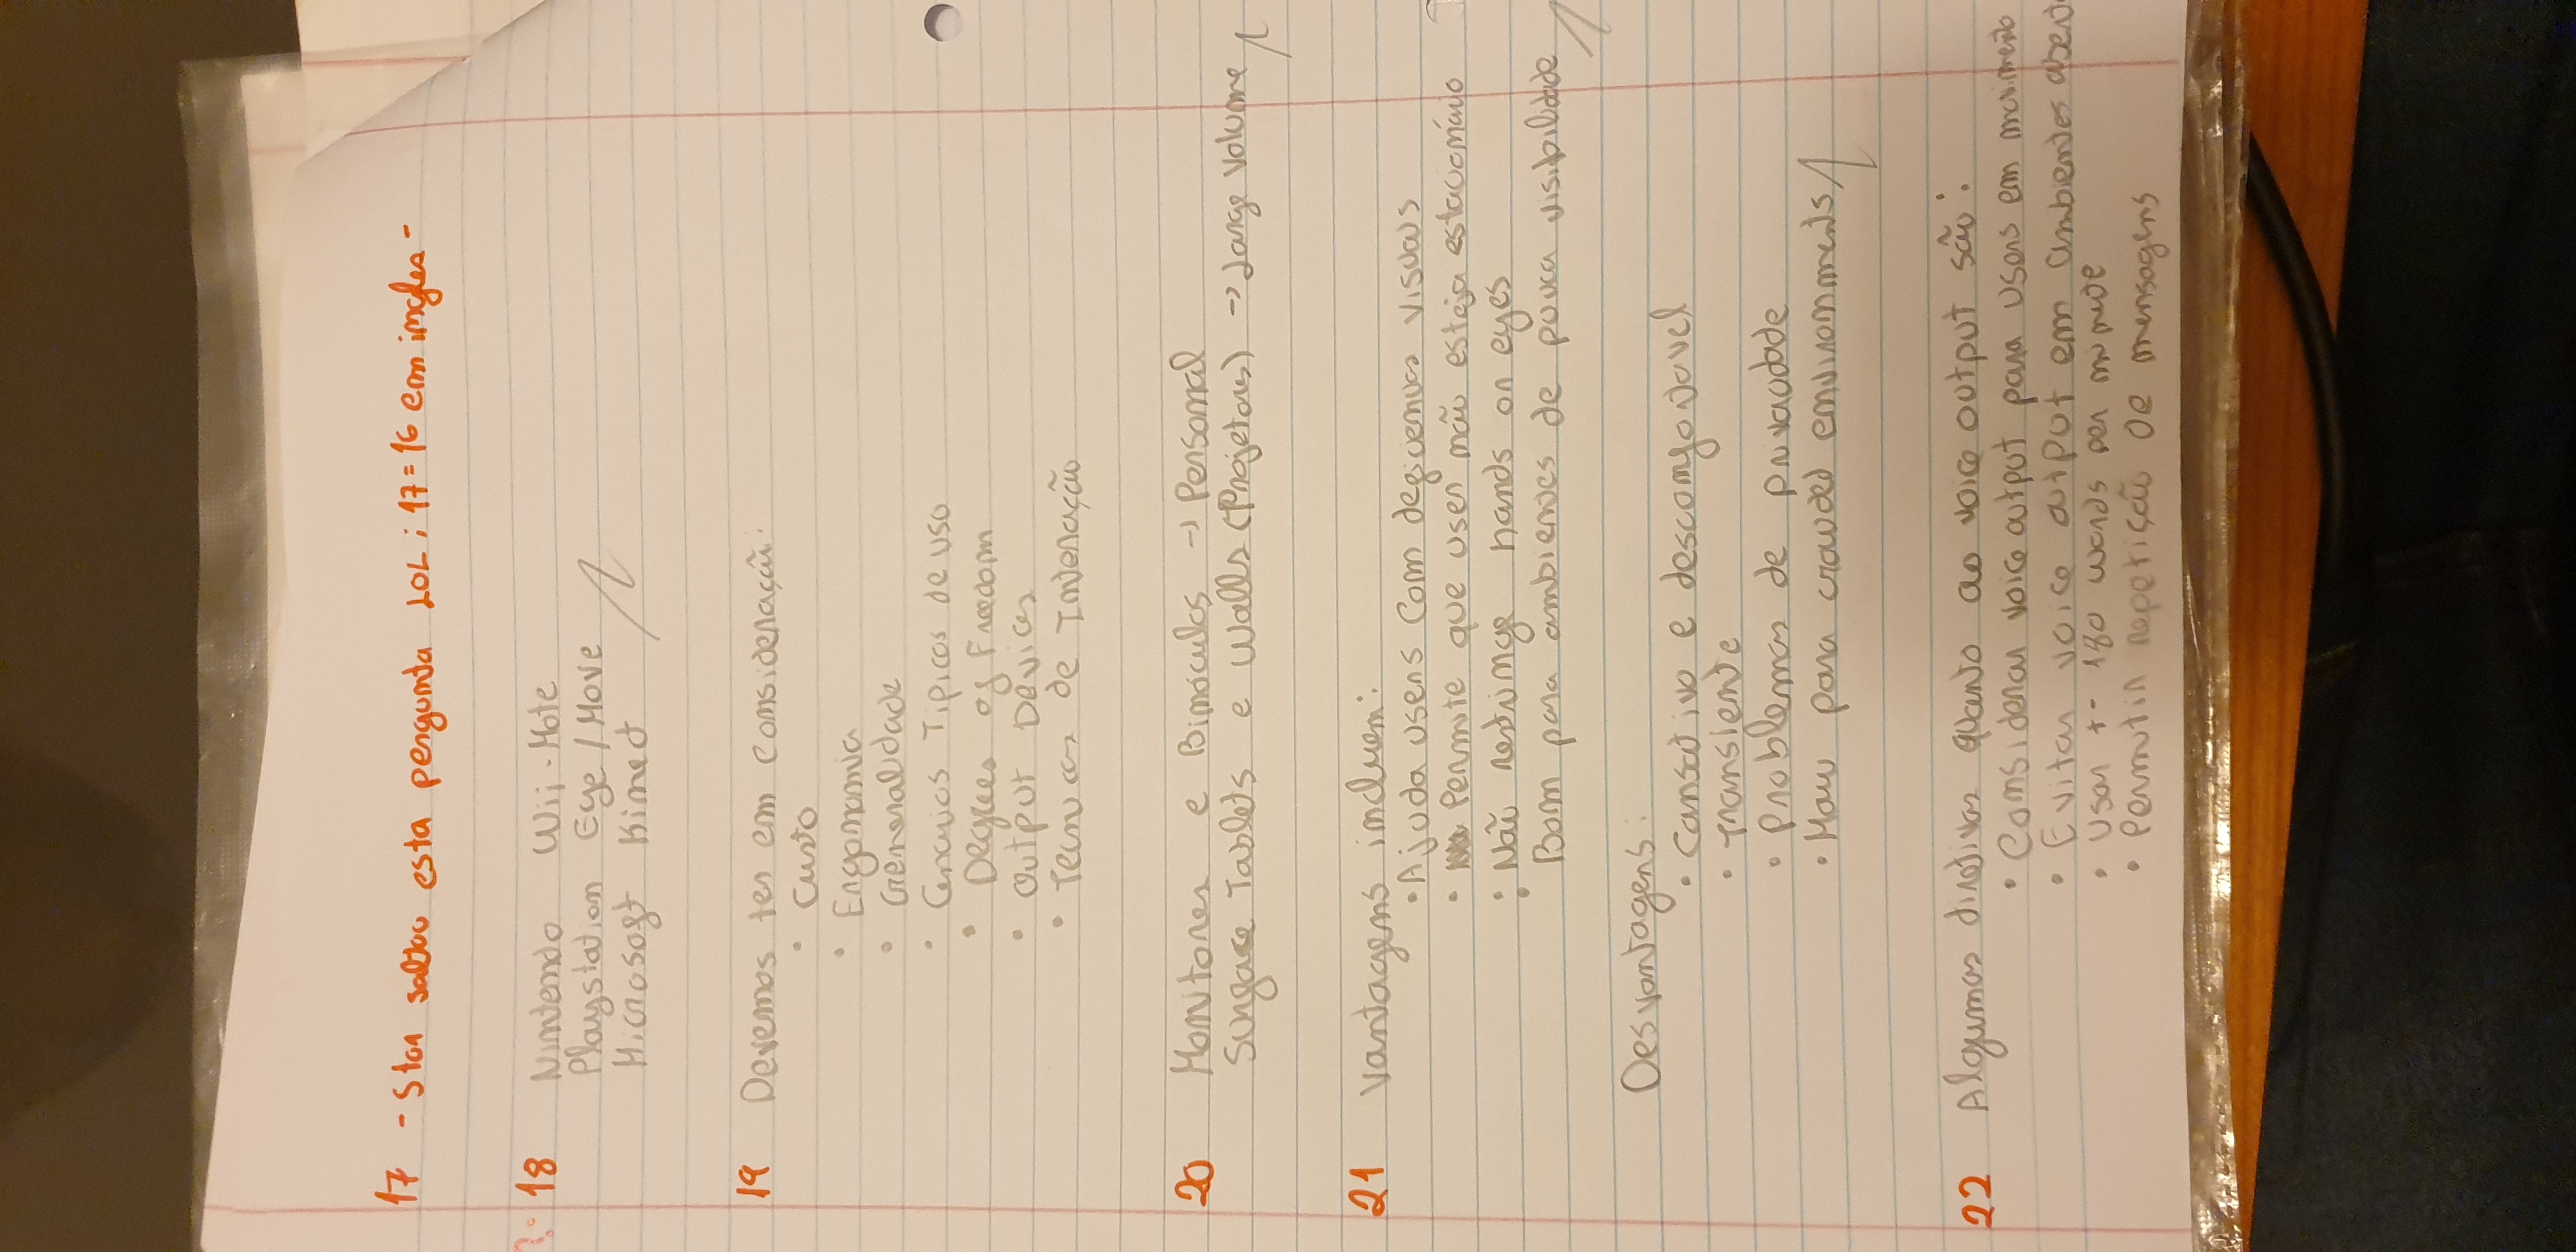 17 - Stor saltou esta pergunta LOL ; 17=16 em ingles -
?• 18 Nintendo Wii-Mote
Playstation Eye / Move
Microsoft Kinect
19 Devemos ter em consideração:
• Custo
• Ergonomia
• Generalidade
• Cenarios Tipicos de uso
• Degrees of Freedom
• Output Devices
• Tecnicas de Interação
20 Monitores e Binóculos -> Personal
Surgace Tablets e Walls (Projetores) -> Large Volume
21 Vantagens incluem:
• Ajuda users com deficiencias visuais
• Permite que user não esteja estacionário
• Não restringe hands or eyes
• Bom para ambientes de pouca visibilidade
Desvantagens:
• Cansativo e desconfortavel
• Transiente
• Problemas de privacidade
• Mau para crowded environments
22 Algumas diretivas quanto ao voice output são:
• Considerar voice output para users em movimento
• Evitar voice output em ambientes
• Usar +- 180 words per minute
• Permitir repetição de mensagens